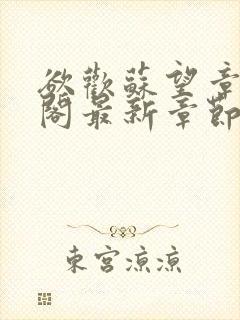 欲歡蘇望章
閣最新章節
東宮涼涼